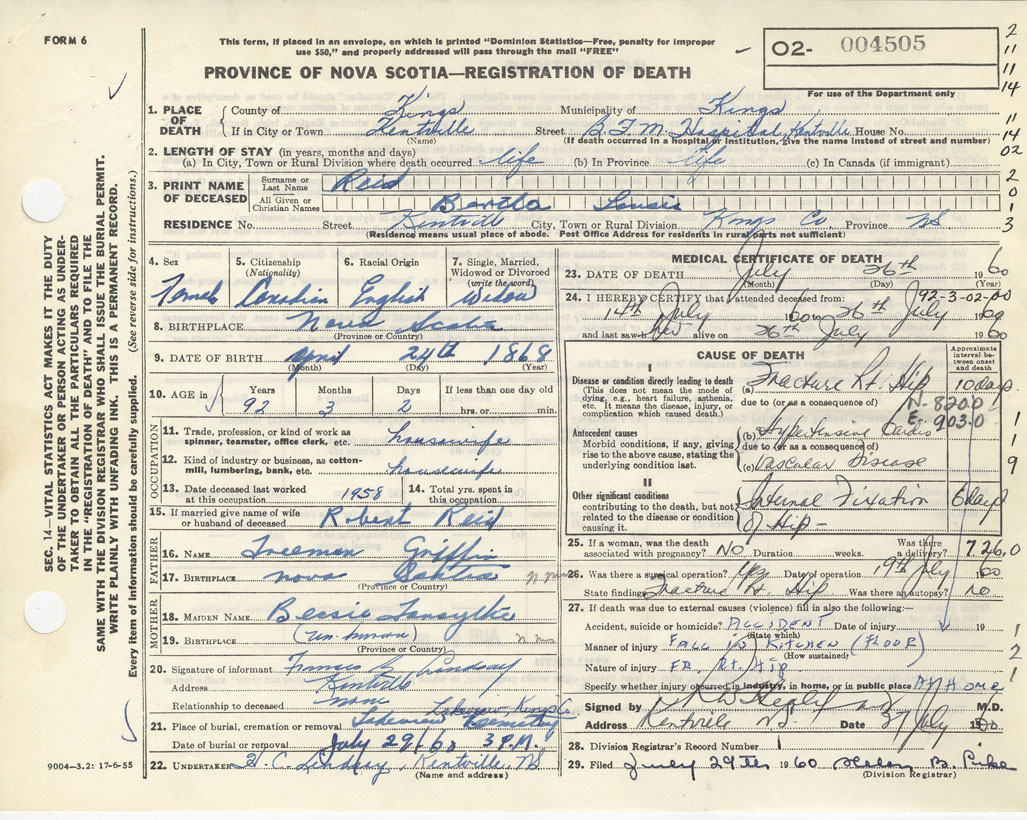 FORM 6
This form, if placed in an envelope, on which is printed "Dominion Statistics—Free, penalty for improper
use $50," and properly addressed will pass through the mail "FREE"
PROVINCE OF NOVA SCOTIA—REGISTRATION OF DEATH
02- 004505
For use of the Department only
2
11
11
14
11
14
02
2
0
1
3
1. PLACE OF DEATH { County of Kings Municipality of Kings
If in City or Town Kentville Street B.F.M. Hospital, Kentville House No.
(Name) (If death occurred in a hospital or institution, give the name instead of street and number)
2. LENGTH OF STAY (in years, months and days)
(a) In City, Town or Rural Division where death occurred life (b) In Province life (c) In Canada (if immigrant)
3. PRINT NAME OF DECEASED
Surname or Last Name Reid
All Given or Christian Names Bertha Louise
RESIDENCE No. Street Kentville City, Town or Rural Division Kings Co. Province NS
(Residence means usual place of abode. Post Office Address for residents in rural parts not sufficient)
4. Sex Female
5. Citizenship (Nationality) Canadian
6. Racial Origin English
7. Single, Married, Widowed or Divorced (write the word) Widow
8. BIRTHPLACE Nova Scotia
(Province or Country)
9. DATE OF BIRTH April 24th 1868
(Month) (Day) (Year)
10. AGE in Years 92 Months 3 Days 2 If less than one day old hrs. or min.
OCCUPATION
11. Trade, profession, or kind of work as spinner, teamster, office clerk, etc. housewife
12. Kind of industry or business, as cotton-mill, lumbering, bank, etc. housewife
13. Date deceased last worked at this occupation 1958 14. Total yrs. spent in this occupation
15. If married give name of wife or husband of deceased Robert Reid
FATHER
16. NAME Freeman Griffin
17. BIRTHPLACE Nova Scotia
(Province or Country)
MOTHER
18. MAIDEN NAME Bessie Forsythe
19. BIRTHPLACE (unknown)
(Province or Country)
20. Signature of informant Francis Lindsay
Address Kentville
Relationship to deceased none
21. Place of burial, cremation or removal Lakeview Cemetery
Lakeview Kings Co
Date of burial or removal July 29/60 3 P.M.
22. UNDERTAKER C. Lindsay, Kentville, NS
(Name and address)
MEDICAL CERTIFICATE OF DEATH
23. DATE OF DEATH July 26th 1960
(Month) (Day) (Year)
92-3-02-00
24. I HEREBY CERTIFY that I attended deceased from:
14th July 1960 to 26th July 1960
and last saw her alive on 26th July 1960
CAUSE OF DEATH
Approximate interval between onset and death
I
Disease or condition directly leading to death
(This does not mean the mode of dying, e.g., heart failure, asthenia, etc. It means the disease, injury, or complication which caused death.)
(a) Fracture Rt. Hip 10 days
due to (or as a consequence of)
N-820.0
E-903.0
Antecedent causes
Morbid conditions, if any, giving rise to the above cause, stating the underlying condition last.
(b) Hypertensive Cardio
due to (or as a consequence of)
(c) Vascular Disease
1
1
9
II
Other significant conditions
contributing to the death, but not related to the disease or condition causing it.
Internal Fixation 6 days
of Hip -
25. If a woman, was the death associated with pregnancy? NO Duration weeks. Was there a delivery?
726.0
26. Was there a surgical operation? Yes Date of operation 19th July 60
State findings Fracture Rt. Hip Was there an autopsy? no
27. If death was due to external causes (violence) fill in also the following:—
Accident, suicide or homicide? ACCIDENT Date of injury 19
(State which)
Manner of injury FALL IN KITCHEN (FLOOR)
(How sustained)
Nature of injury FR. Rt. Hip
Specify whether injury occurred in industry, in home, or in public place AT HOME
1
2
1
Signed by M.D.
Address Kentville N.S. Date 27 July 1960
28. Division Registrar's Record Number 1
29. Filed July 29th 1960 Helen B. Pike
(Division Registrar)
SEC. 14—VITAL STATISTICS ACT MAKES IT THE DUTY
OF THE UNDERTAKER OR PERSON ACTING AS UNDER-
TAKER TO OBTAIN ALL THE PARTICULARS REQUIRED
IN THE "REGISTRATION OF DEATH" AND TO FILE THE
SAME WITH THE DIVISION REGISTRAR WHO SHALL ISSUE THE BURIAL PERMIT.
WRITE PLAINLY WITH UNFADING INK. THIS IS A PERMANENT RECORD.
Every item of information should be carefully supplied. (See reverse side for instructions.)
9004-3.2: 17-6-55